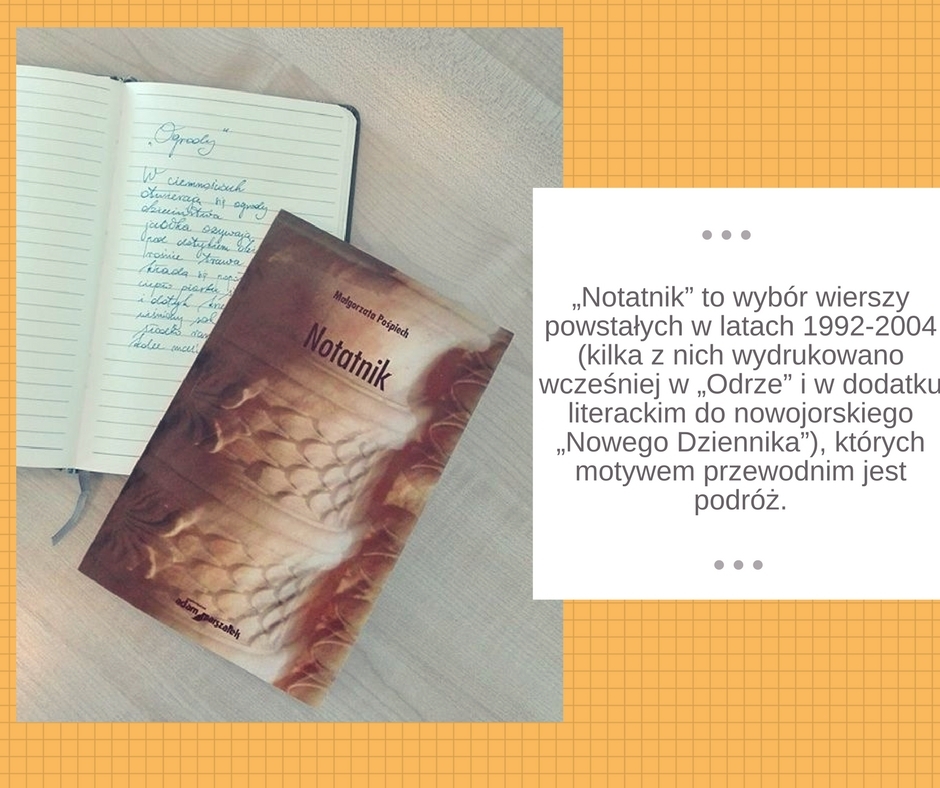 „Ogrody”
W ciemnościach
otwierają się ogrody
dzieciństwa
jabłka ożywają
pod dotykiem
rośnie trawa
i dotyk
Małgorzata Pośpiech
Notatnik
adam marszałek
„Notatnik” to wybór wierszy
powstałych w latach 1992-2004
(kilka z nich wydrukowano
wcześniej w „Odrze” i w dodatku
literackim do nowojorskiego
„Nowego Dziennika”), których
motywem przewodnim jest
podróż.